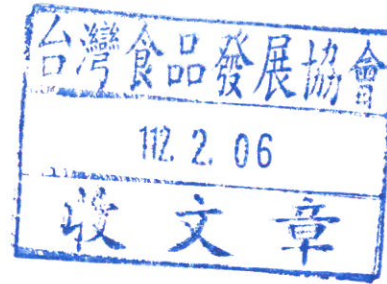 台灣食品發展協會
112. 2. 06
收文章